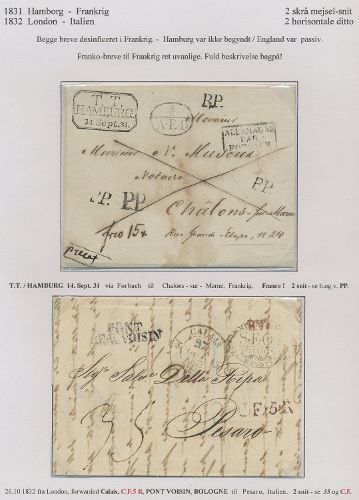 1831 Hamborg - Frankrig 2 skrå mejsel-snit
1832 London - Italien 2 horisontale ditto
Begge breve desinficeret i Frankrig. - Hamburg var ikke begyndt / England var passiv.
Franko-breve til Frankrig ret uvanlige. Fuld beskrivelse bagpå!
T.T.
HAMBURG
14 Sept. 31.
4
A.E.D.
P.P.
Monsieur
ALLEMAGNE
PAR
FORBACH
Monsieur N.
Notaire
P.P. P.P. P.P.
Châlons sur Marne
frco 15
Rue Grande Etape, N 24
T.T. / HAMBURG 14. Sept. 31 via Forbach til Chalons - sur - Marne, Frankrig. Franco! 2 snit - se h.og v. PP.
PONT
BEAUVOISIN
CALAIS
Sigr Salvr. Della Ripa
35
C.F.5.R
Pesaro
26.10.1832 fra London, forwarded Calais, C.F.5 R, PONT VOISIN, BOLOGNE til Pesaro, Italien. 2 snit - se 35 og C.F.